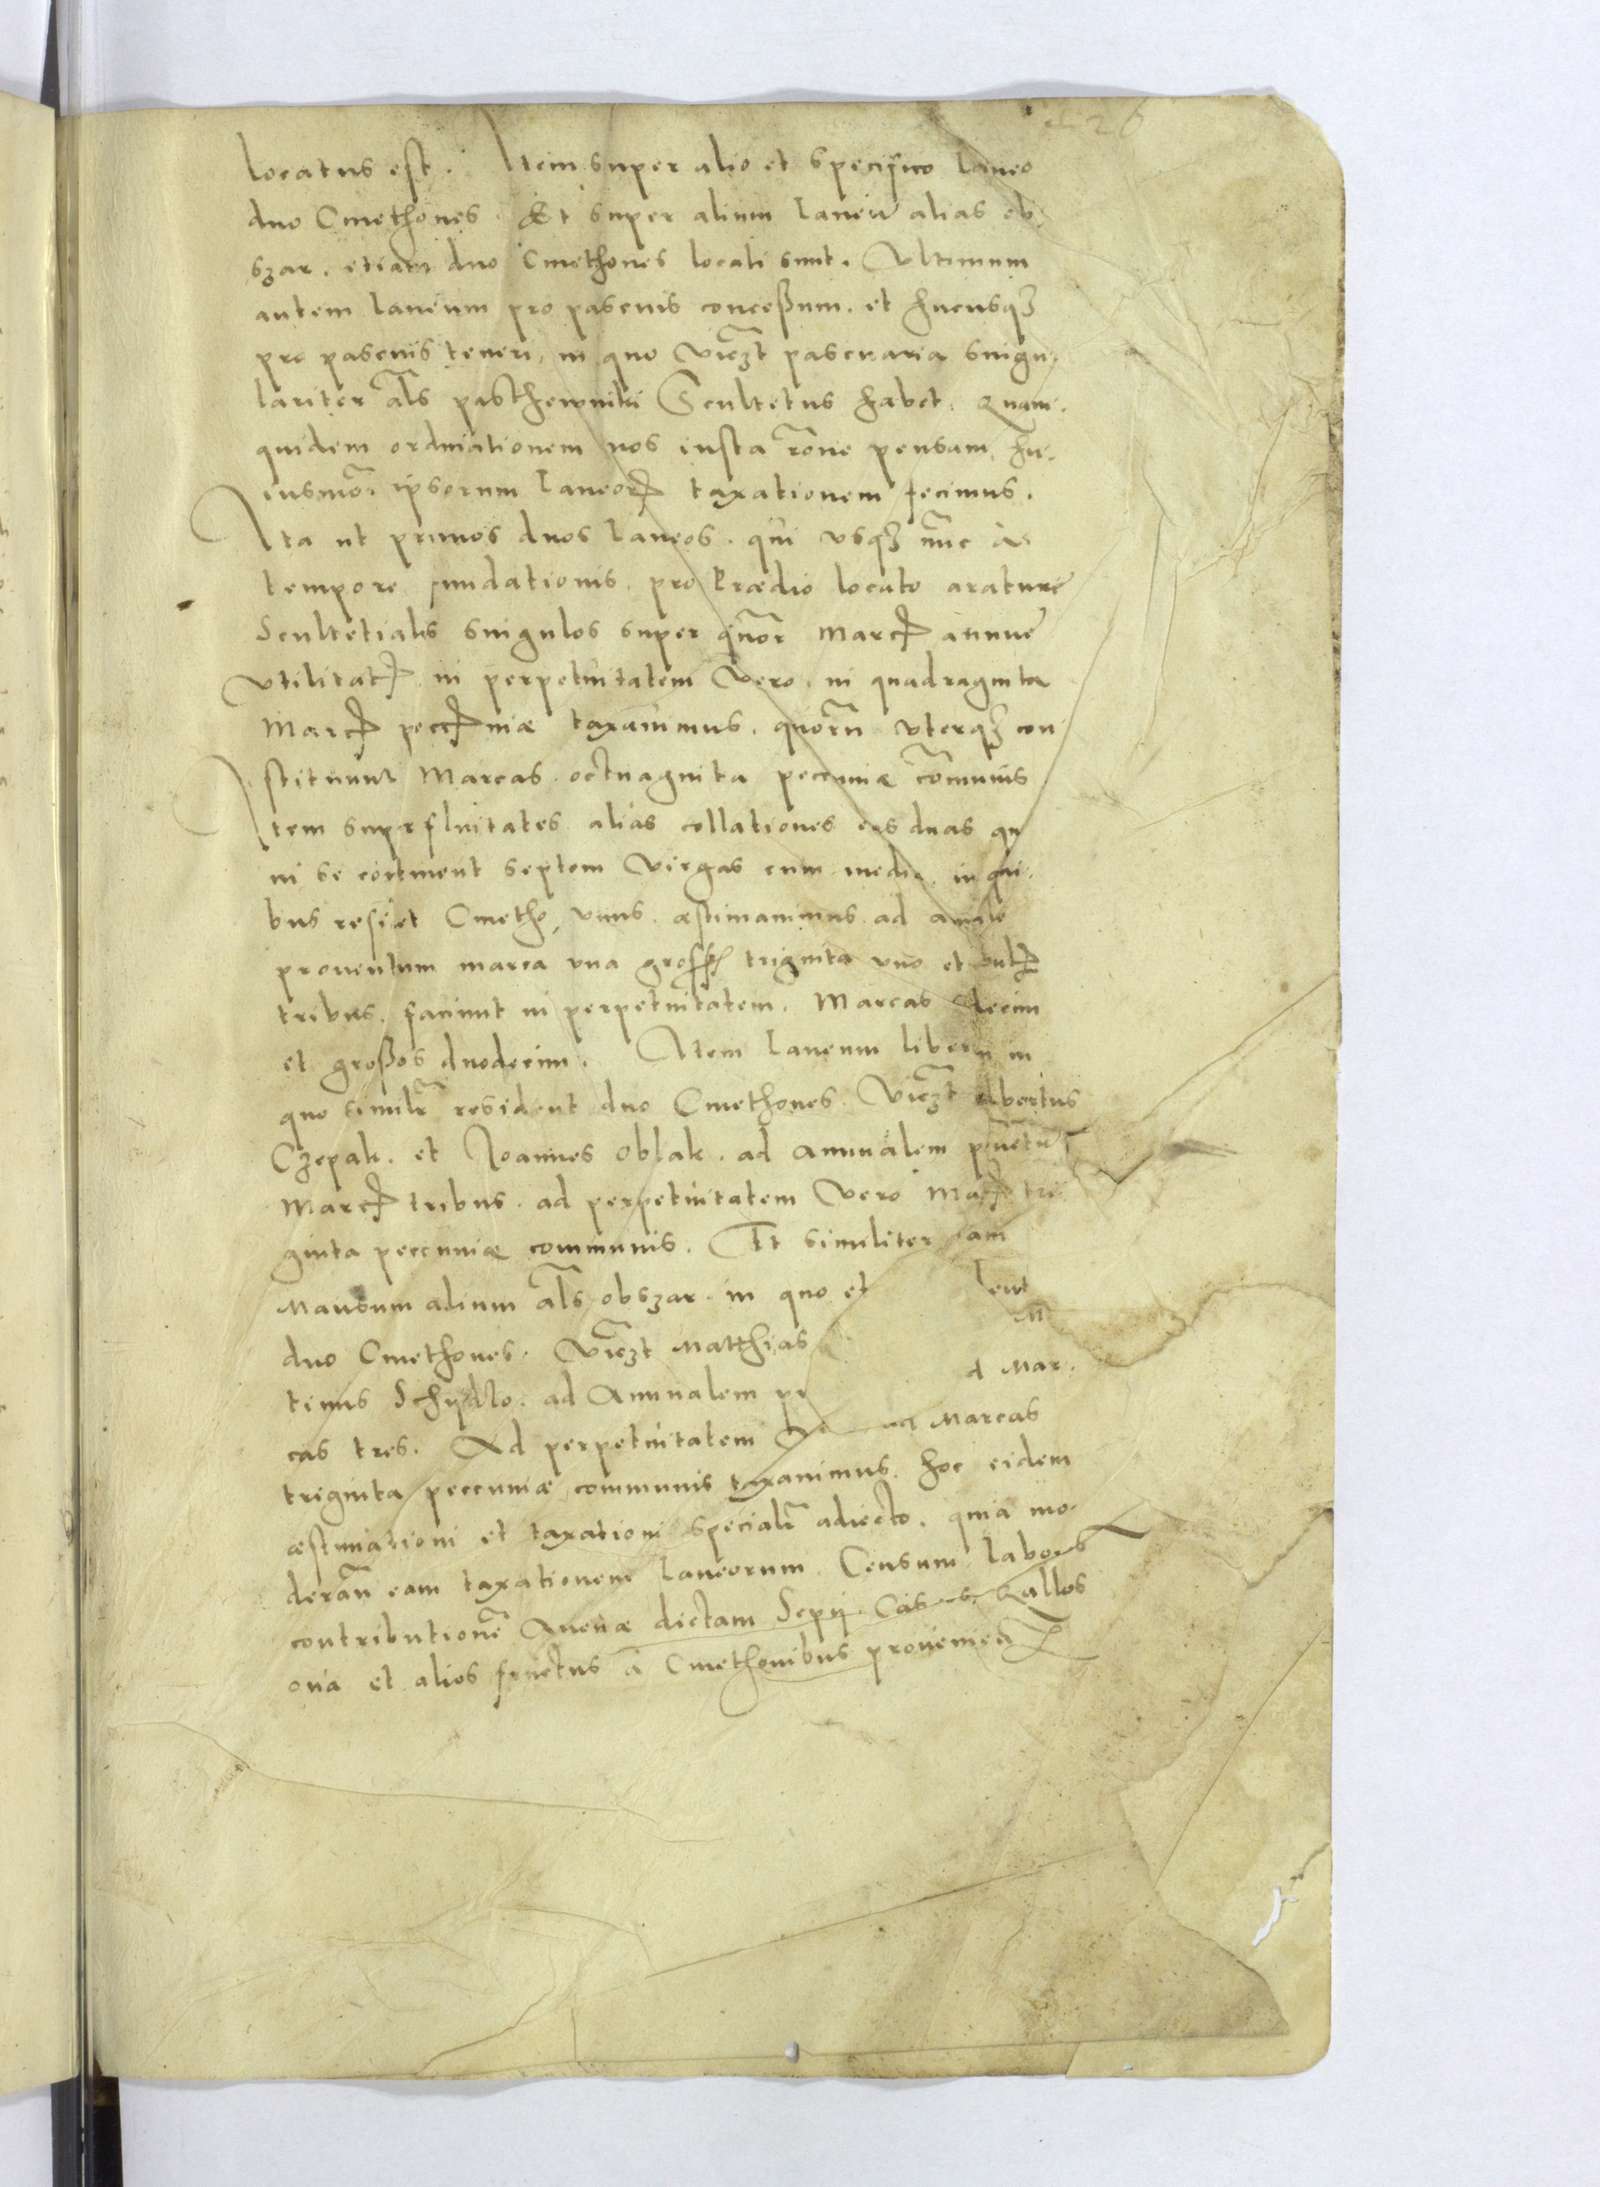 locatus est. Item super alio et specifico laneo
duo Cmethones. Et super alium laneũ alias ob
szar. etiam duo Cmethones locati sunt. Vltimum
autem laneum pro pascuis conceßum. et hucusq3
pro pascuis teneri, in quo vicz̃t pascuaria singu
lariter als̃ pasthewniki Scultetus habet. Quam
quidem ordinationem nos iusta rõne pensam, hu
iusmõi ipsorum laneoꝝ taxationem fecimus.
Ita ut primos duos laneos. qui vsq3 nũc à
tempore fundationis. pro Prædio locato arature
Scultetialis singulos super quõr Marcꝭ annue
vtilitatꝭ in perpetuitatem vero. in quadraginta
Marcꝭ peccuniæ taxauimus. quorũ vterq3 con
stituunt Marcas octuaginta peccuniæ cõmunis
Item suprfluitates alias collationes eas duas qu
in se continent septem virgas cum media in qui
bus resid et Cmetho, vnus. æstimauimus ad
prouentum marca vna groß triginta vno et
tribus. faciunt in perpetuitatem. Marcas
et großos duodecim. Item laneum liberũ in
quo similr̃ resident duo Cmethones. Vicz̃t Albertus
Czepak. et Joannes Oblak. ad annualem
Marcꝭ tribus. ad perpetuitatem vero Marcꝭ tri
ginta peccuniæ communis. Et similiter
Mansum alium als̃ obszar. in quo et lent
duo Cmethones. Vicz̃t Matthias M
tinus Schydlo. ad Annualem pr d Mar.
cas tres. Ad perpetuitatem Marcas
triginta peccuniæ communis taxauimus. hoc eidem
æstimationi et taxationi specialr̃ adiecto. quia mo
derãn eam taxationem laneorum. Censum labores
contributionẽ Auenæ dictam Sepij. Caseos Gallos
oua et alios fructus à Cmethonibus prouenien